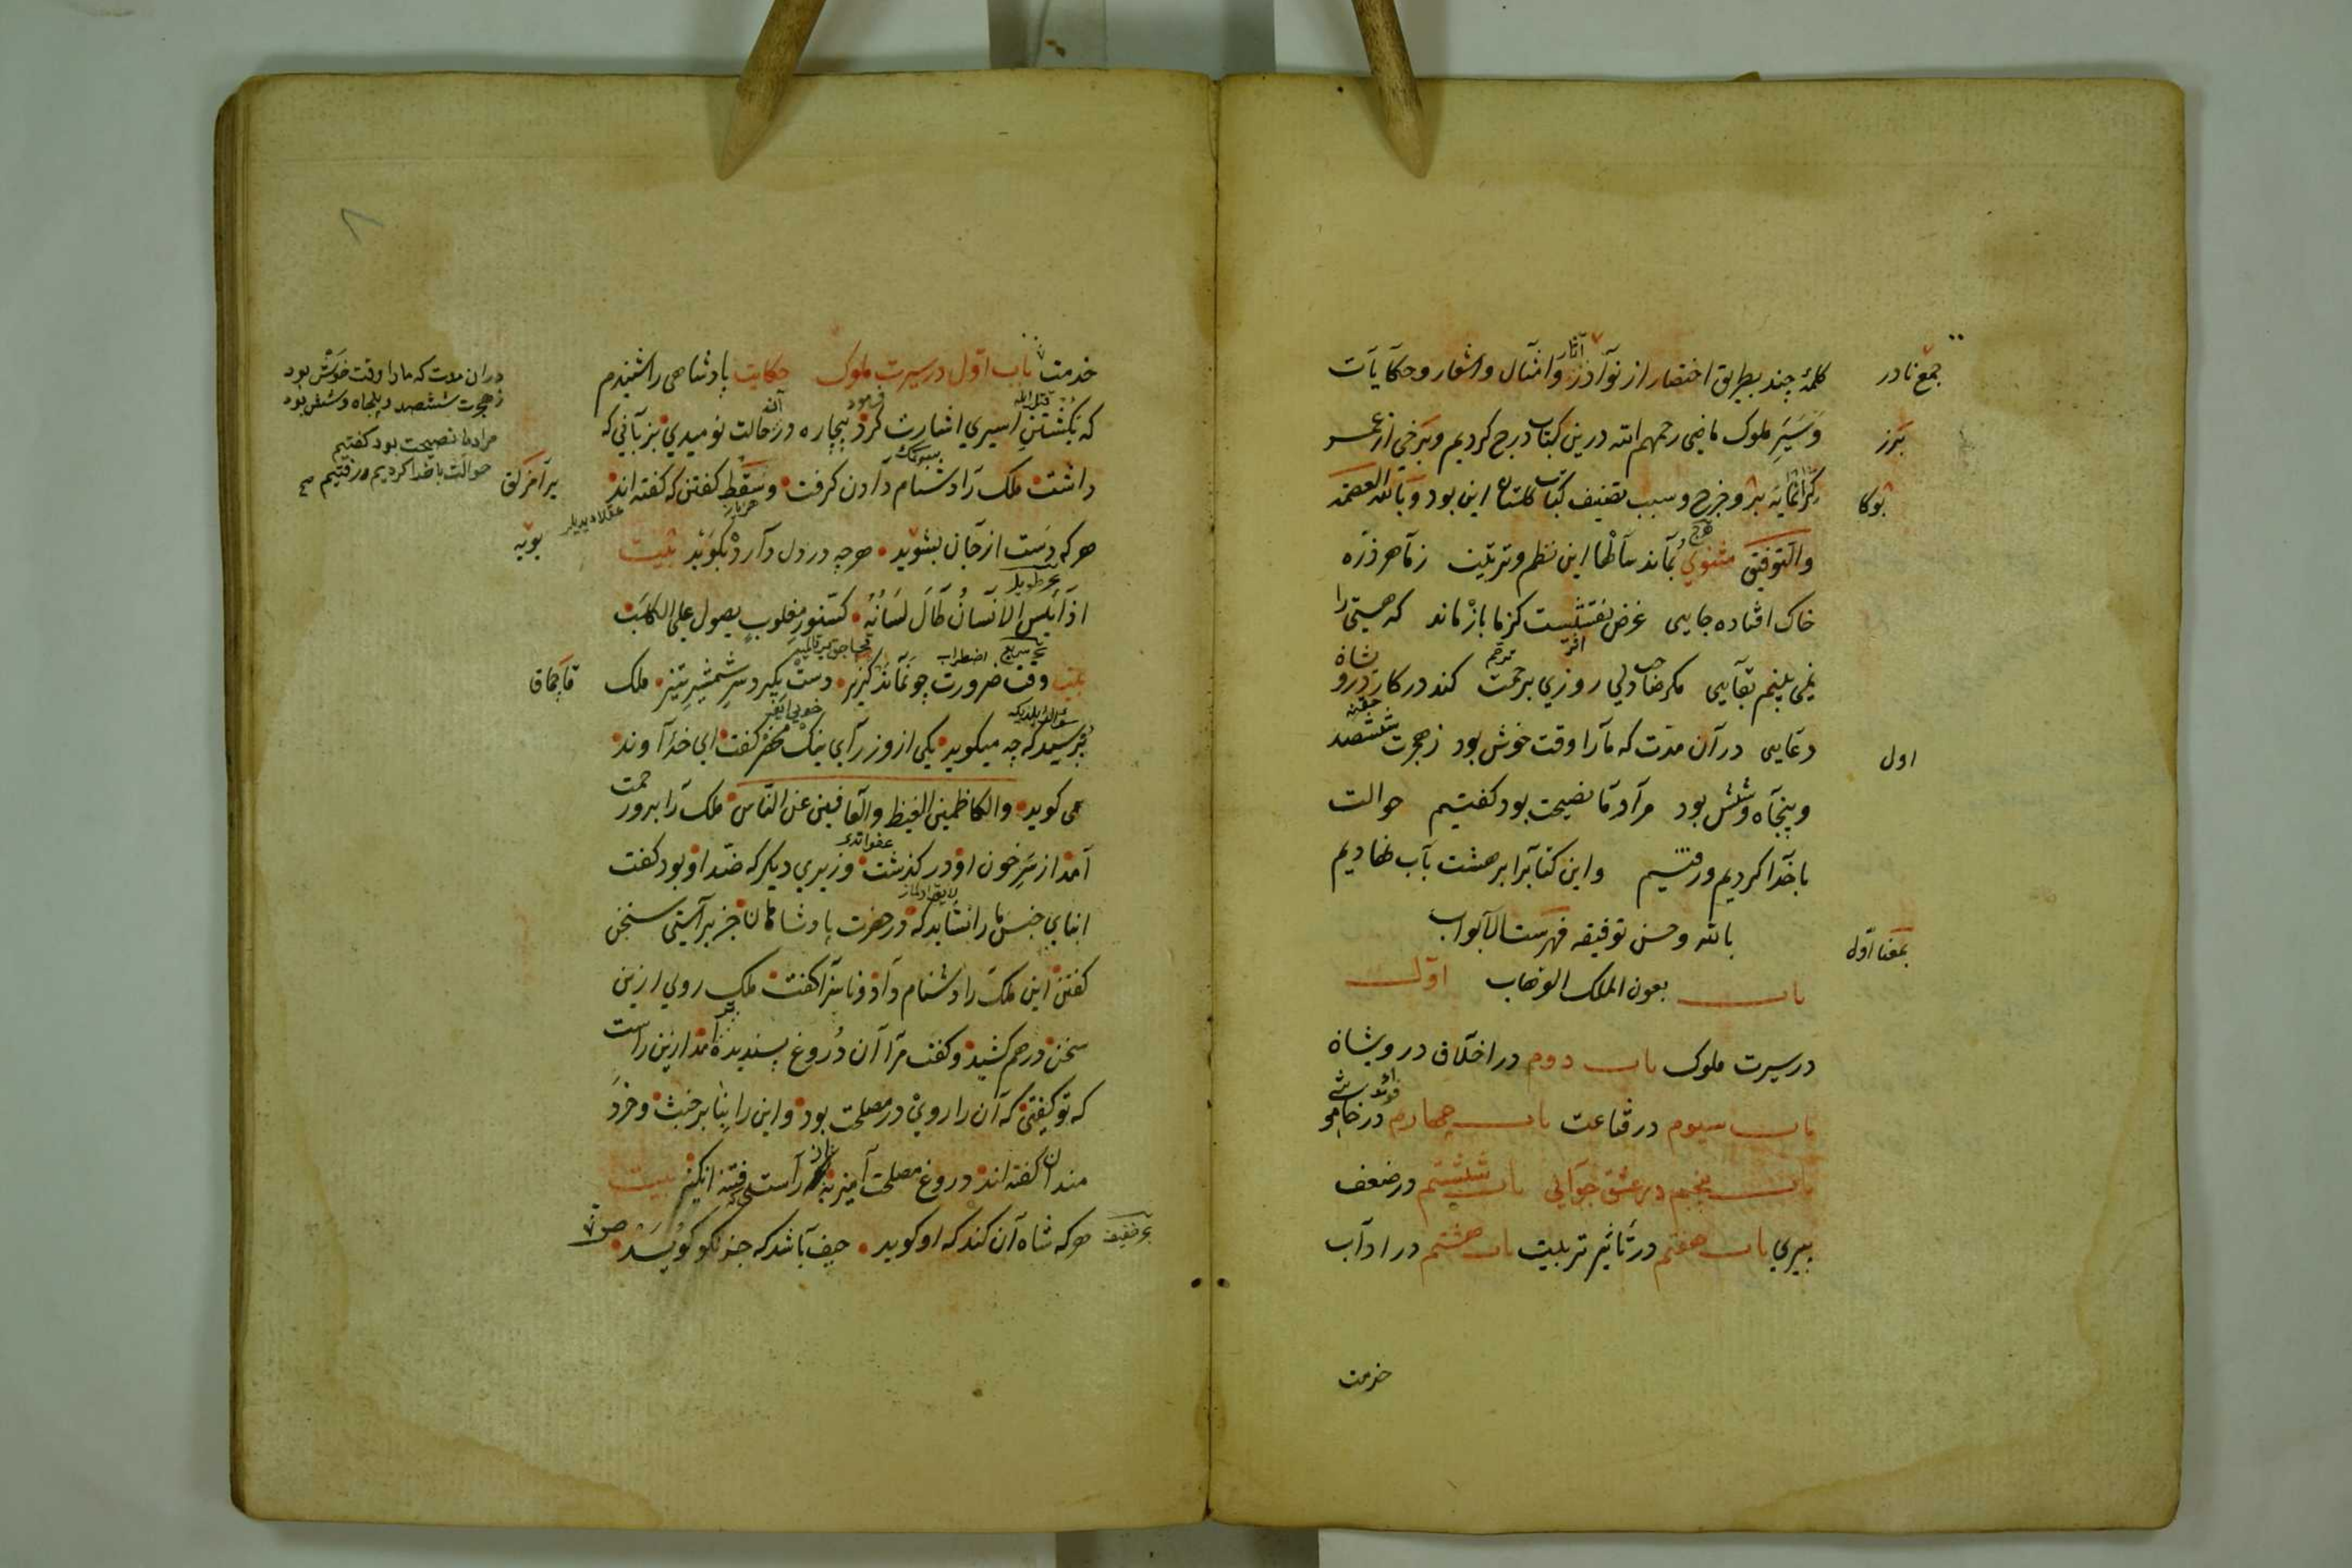 کلمهٔ چند بطریق اختصار از نوادر وامثال واشعار وحکایات
وسیر ملوک ماضی رحمهم الله درین کتاب درج کردیم وبرخی از عمر
کرانمایه برو خرج وسبب تصنیف کتاب کلستان این بود وبالله العصمة
والتوفیق مثنوی بماند سالها این نظم وترتیب زما هر ذره
خاک افتاده جایی غرض نقشیست کزما باز ماند که هستی را
نمی بینم بقایی مکر صاحب دلی روزی برحمت کند در کار درویشان
دعایی در آن مدت که مارا وقت خوش بود زهجرت ششصد
وپنجاه وشش بود مراد ما نصیحت بود کفتیم حوالت
باخدا کردیم ورفتیم واین کتابرا بر هشت باب نهادیم
بالله وحسن توفیقه فهرست الابواب
باب بعون الملک الوهاب اول
در سیرت ملوک باب دوم در اخلاق درویشان
باب سیوم در قناعت باب چهارم در فوائد خاموشی
باب پنجم در عشق جوانی باب ششم در ضعف
پیری باب هفتم در تأثیر تربیت باب هشتم در اداب
خدمت
جمع نادر
اول
خدمت باب اول در سیرت ملوک حکایت پادشاهی را شنیدم
که بکشتن اسیری اشارت کرد بیچاره در حالت نومیدی بزبانی که
داشت ملک را دشنام دادن کرفت وسقط کفتن که کفته اند
هر که دست از جان بشوید هر چه در دل دارد بکوید بیت
اذا یئس الانسان طال لسانه کسنور مغلوب یصول علی الکلب
بیت وقت ضرورت چو نماند کریز دست بکیرد سر شمشیر تیز ملک
پرسید که چه میکوید یکی از وزرای نیک محضر کفت ای خداوند
می کوید والکاظمین الغیظ والعافین عن الناس ملک را برو رحمت
آمد از سر خون او در کذشت وزیری دیکر که ضد او بود کفت
ابنای جنس ما را نشاید که در حضرت پادشاهان جز براستی سخن
کفتن این ملک را دشنام داد وناسزا کفت ملک روی ازین
سخن درهم کشید وکفت مرا آن دروغ پسندیده تر آمد ازین راست
که تو کفتی که آن را روی در مصلحت بود واین را بنا بر خبث وخرد
مندان کفته اند دروغ مصلحت آمیز به از راست فتنه انکیز بیت
هر که شاه آن کند که او کوید حیف باشد که جز نکو کوید
دران مدت که مارا وقت خوش بود
زهجرت ششصد وپنجاه وشش بود
مراد ما نصیحت بود کفتیم
حوالت باخدا کردیم ورفتیم صح